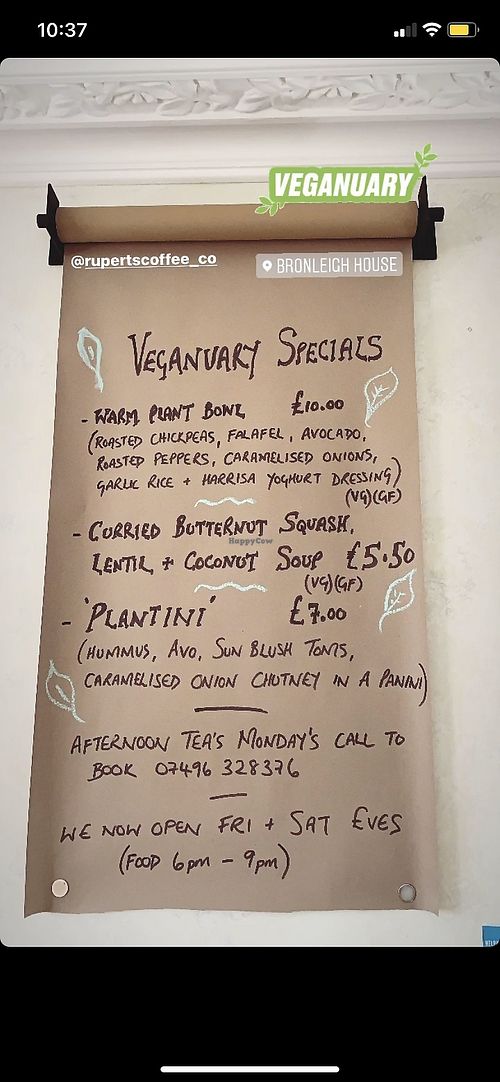 10:37
VEGANUARY
@rupertscoffee_co
BRONLEIGH HOUSE
VEGANUARY SPECIALS
- WARM PLANT BOWL £10.00
(ROASTED CHICKPEAS, FALAFEL, AVOCADO,
ROASTED PEPPERS, CARAMELISED ONIONS,
GARLIC RICE + HARRISA YOGHURT DRESSING)
(VG)(GF)
- CURRIED BUTTERNUT SQUASH,
HappyCow
LENTIL + COCONUT SOUP £5.50
(VG)(GF)
- 'PLANTINI' £7.00
(HUMMUS, AVO, SUN BLUSH TOMS,
CARAMELISED ONION CHUTNEY IN A PANINI)
AFTERNOON TEA'S MONDAY'S CALL TO
BOOK 07496 328376
WE NOW OPEN FRI + SAT EVES
(FOOD 6pm - 9pm)